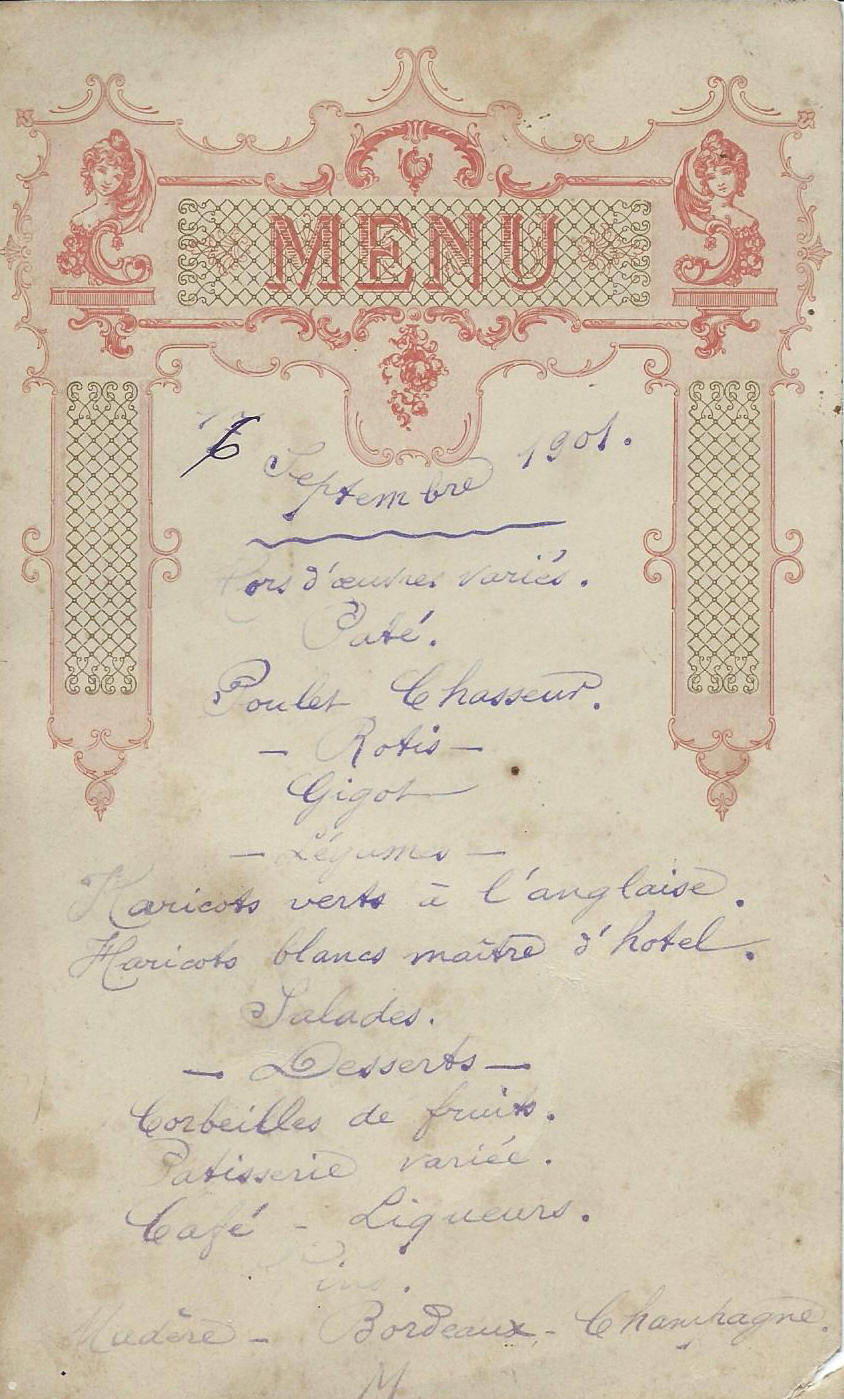 MENU
6 Septembre 1901.
Hors d'œuvres variés.
Paté.
Poulet Chasseur.
— Rotis —
Gigot
— Légumes —
Haricots verts à l'anglaise.
Haricots blancs maître d'hotel.
Salades.
— Desserts —
Corbeilles de fruits.
Patisserie variée.
Café - Liqueurs.
Vins.
Madère - Bordeaux - Champagne.
M